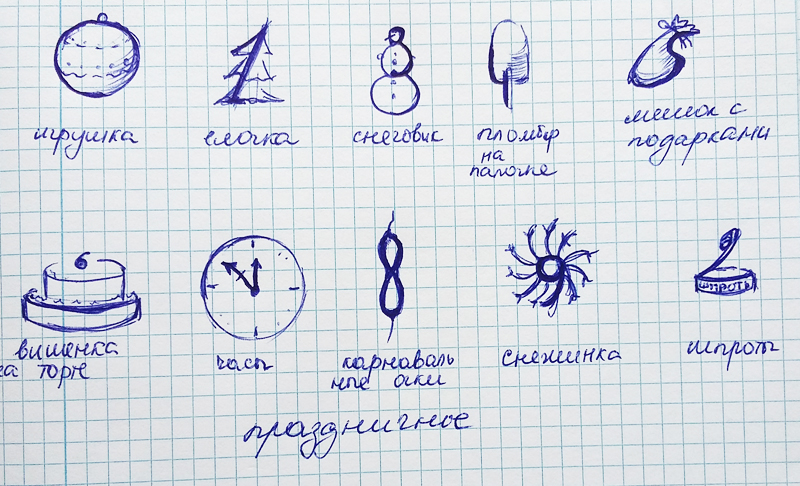 игрушка
елочка
снеговик
пломбир
на
палочке
мешок с
подарками
6
шпроты
вишенка
на торте
часы
карнаваль
ные очки
снежинка
шпроты
праздничное